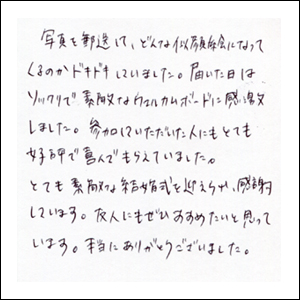 写真を郵送して、どんな似顔絵になって
くるのかドキドキしていました。届いた日は
ソックリで素敵なウェルカムボードに感激
しました。参加していただいた人にもとても
好評で喜んでもらえていました。
とても素敵な結婚式を迎えられ、感謝
しています。友人にもぜひおすすめたいと思って
います。本当にありがとうございました。